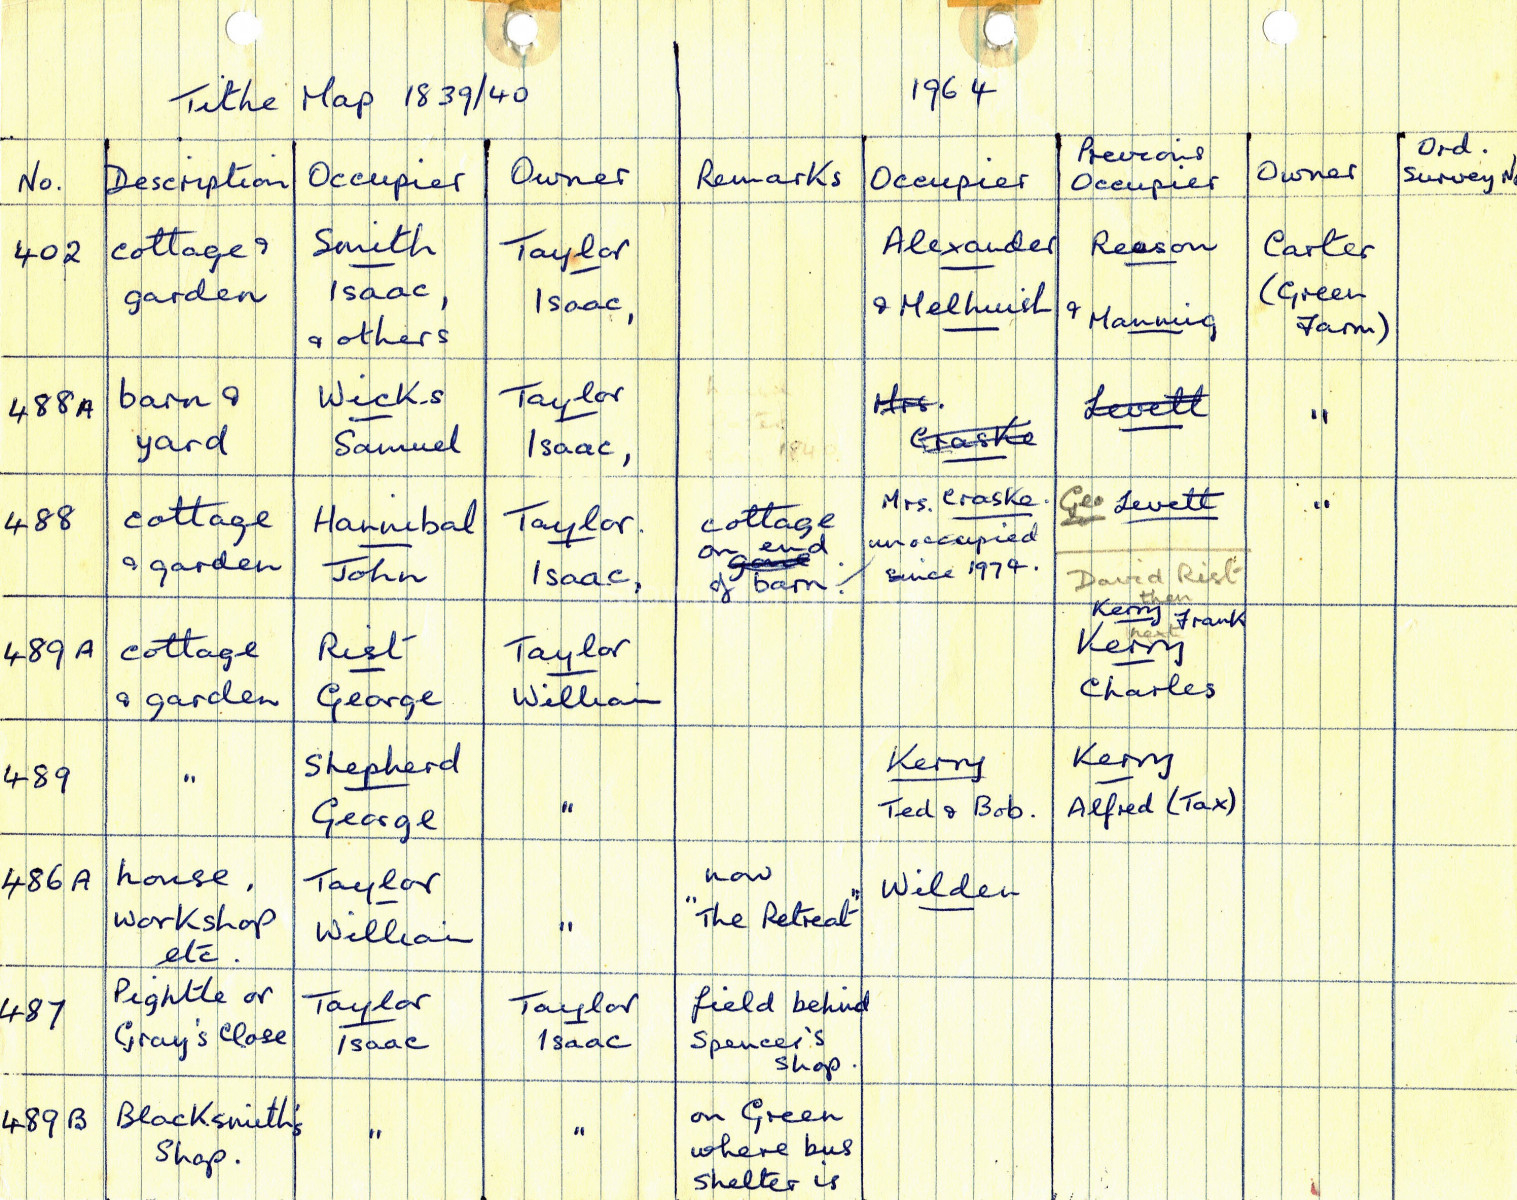 Tithe Map 1839/40
1964
No. Description Occupier Owner Remarks Occupier Previous Occupier Owner Ord. Survey No.
402
cottage &
garden
Smith
Isaac,
& others
Taylor
Isaac,
Alexander
& Melhuish
Reason
& Manning
Carter
(Green
Farm)
488A
barn &
yard
Wicks
Samuel
Taylor
Isaac,
1840
Mrs.
Craske
Levett
"
488
cottage
& garden
Hannibal
John
Taylor.
Isaac,
cottage
on end
of barn.
Mrs. Craske.
unoccupied
since 1974.
Geo Levett
"
David Rist
then
Kerry Frank
next
489A
cottage
& garden
Rist
George
Taylor
William
Kerry
Charles
489
"
Shepherd
George
"
Kerry
Ted & Bob.
Kerry
Alfred (Tax)
486A
house,
workshop
etc.
Taylor
William
"
now
"The Retreat"
Wilden
487
Pightle or
Gray's Close
Taylor
Isaac
Taylor
Isaac
field behind
Spencer's
shop.
489B
Blacksmith's
Shop.
"
"
on Green
where bus
shelter is